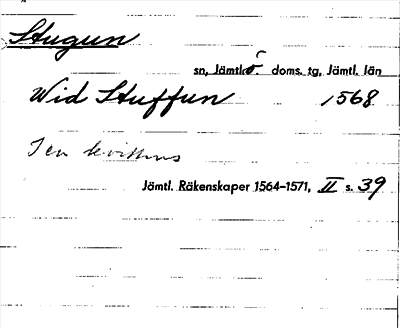 Stugun
sn, Jämtl. ö. doms. tg, Jämtl. län
Wid Stuffun 1568
I en kvittens
Jämtl. Räkenskaper 1564-1571, II s. 39